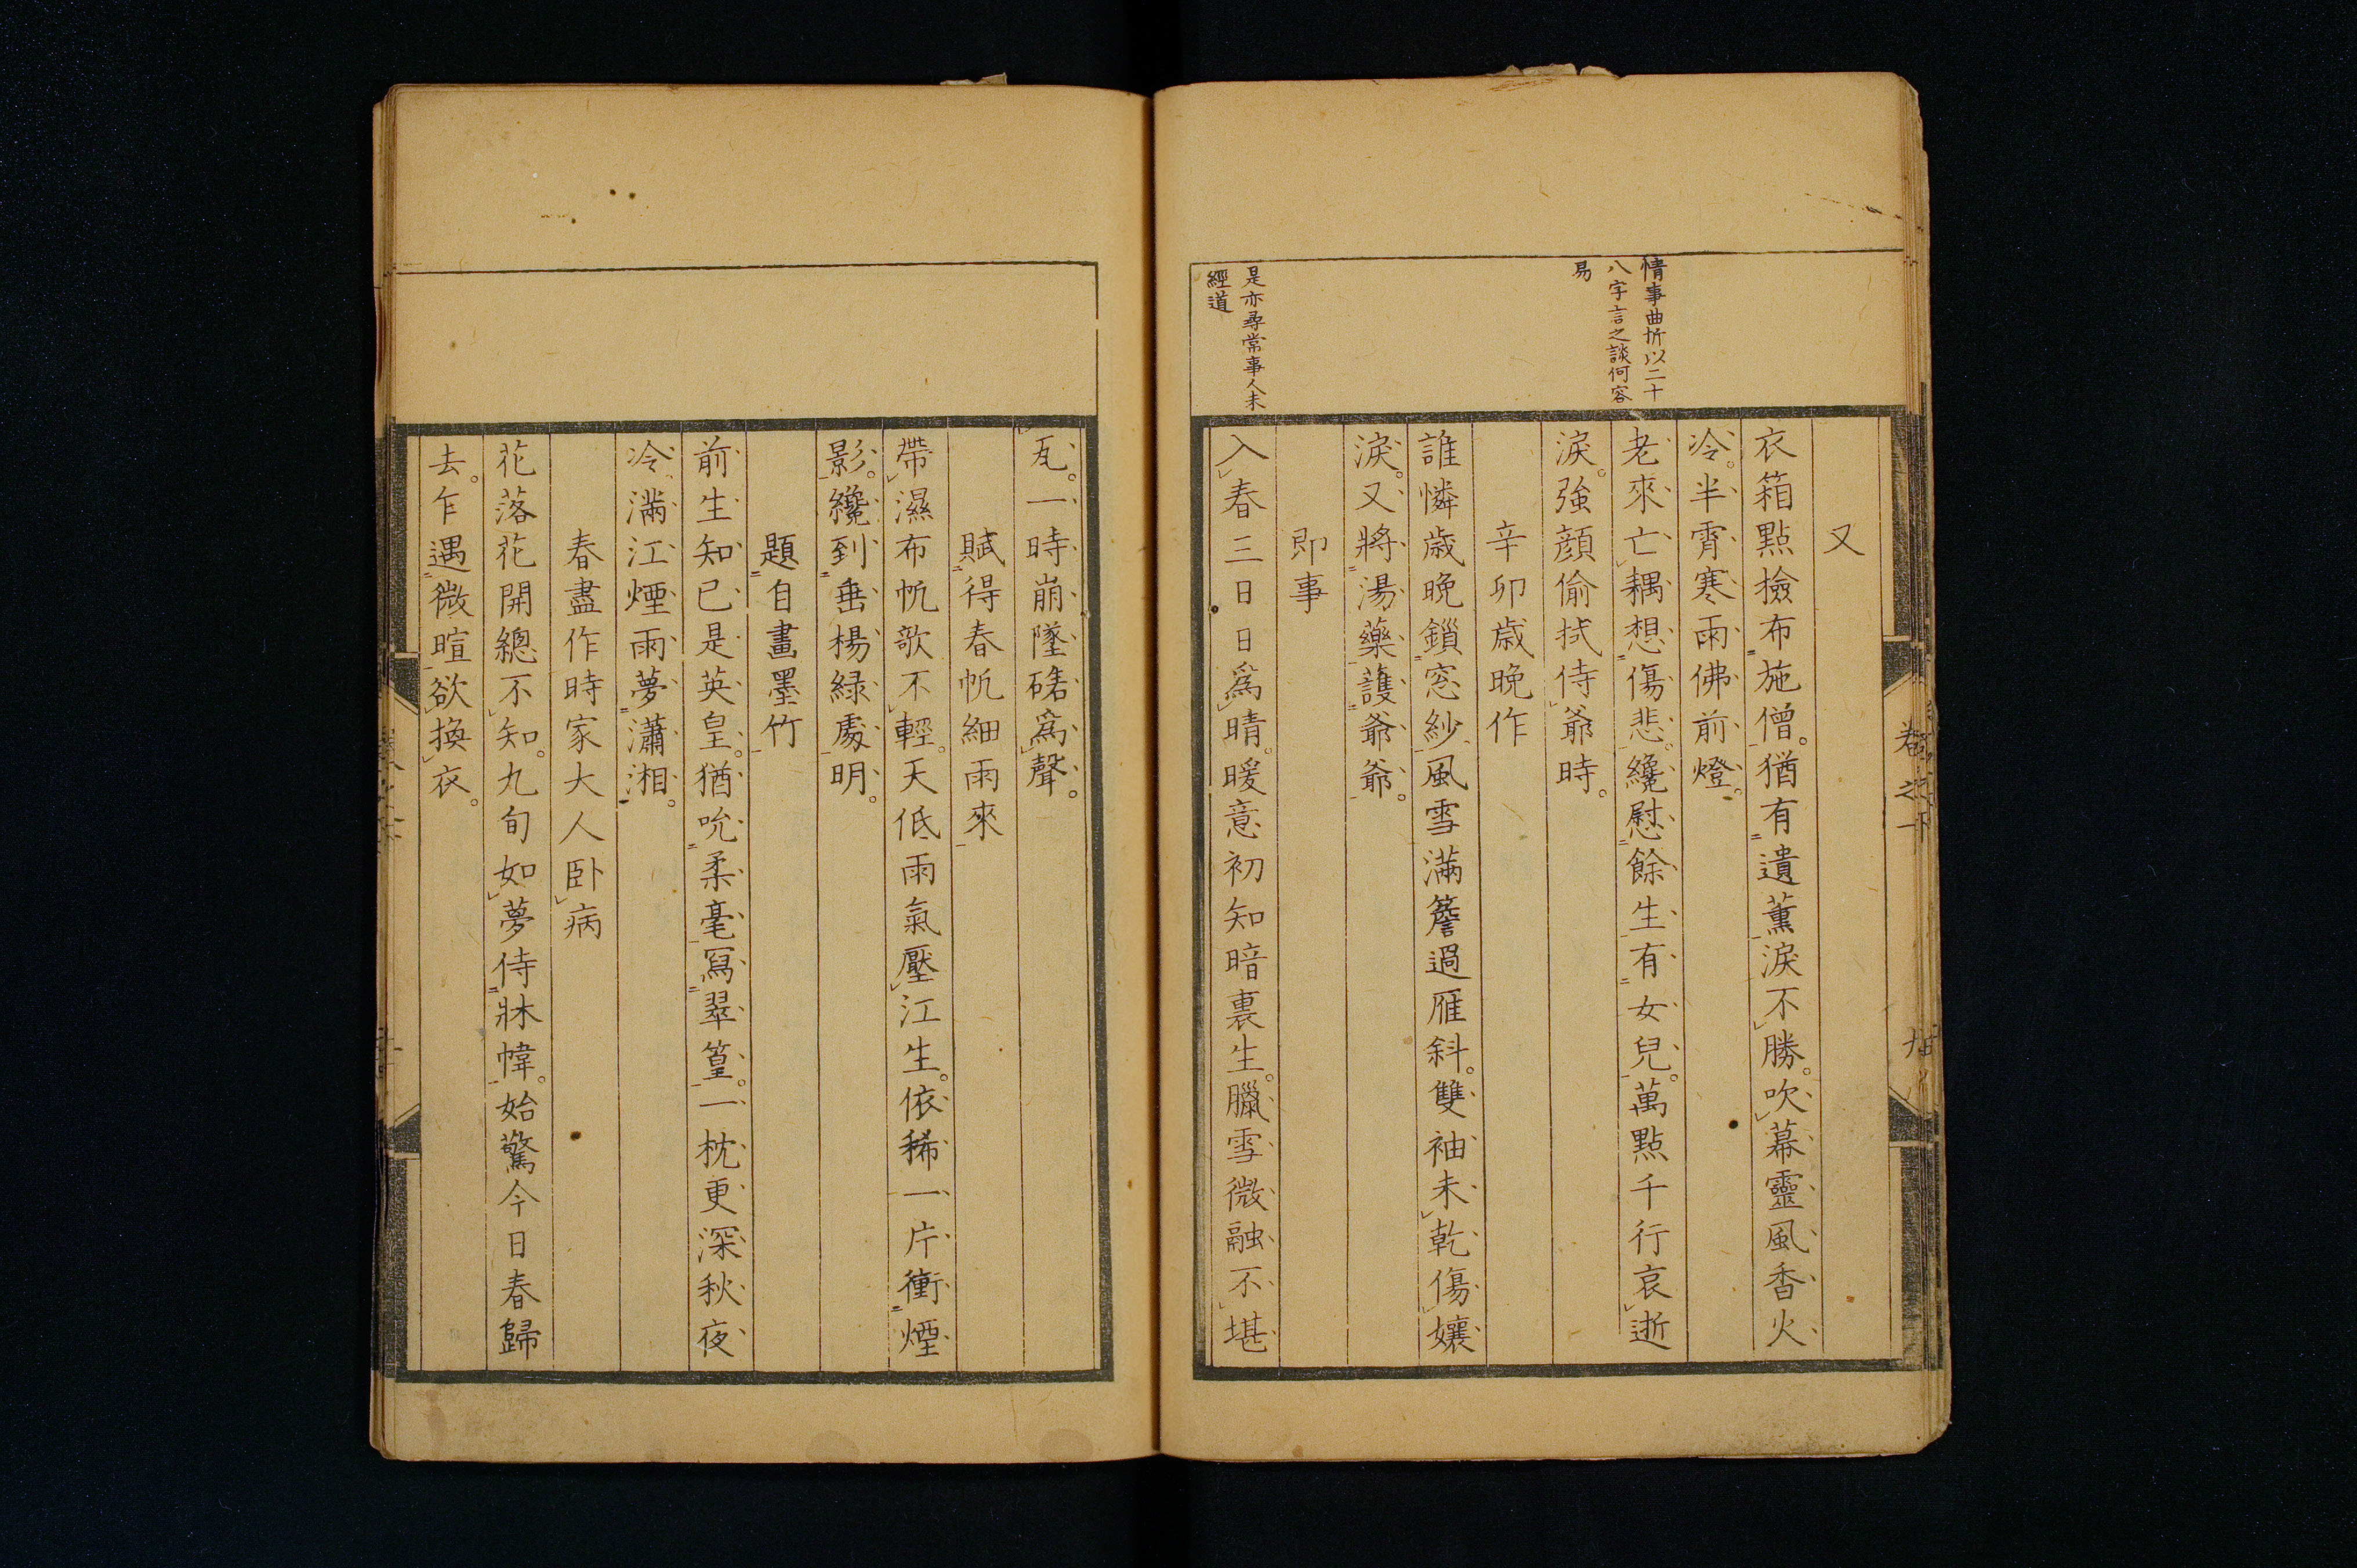 情事曲折以二十
八字言之談何容
易
是亦尋常事人未
經道
又
衣箱點撿布施僧。猶有遺薫淚不勝。吹幕靈風香火
冷。半宵寒雨佛前燈。
老來亡耦想傷悲。纔慰餘生有女兒。萬點千行哀逝
淚。強顔偷拭侍爺時。
辛卯歳晩作
誰憐歳晩鎻窓紗。風雪滿簷過雁斜。雙袖未乾傷孃
淚。又將湯藥護爺爺。
即事
入春三日日爲晴。暖意初知暗裏生。臘雪微融不堪
卷之下
瓦。一時崩墜礚爲聲。
賦得春帆細雨來
帶濕布帆歌不輕。天低雨氣壓江生。依稀一片衝煙
影。纔到垂楊緑處明。
題自畫墨竹
前生知已是英皇。猶吮柔毫冩翠篁。一枕更深秋夜
冷。滿江煙雨夢瀟湘。
春盡作時家大人卧病
花落花開總不知。九旬如夢侍牀幃。始驚今日春歸
去。乍遇微暄欲換衣。